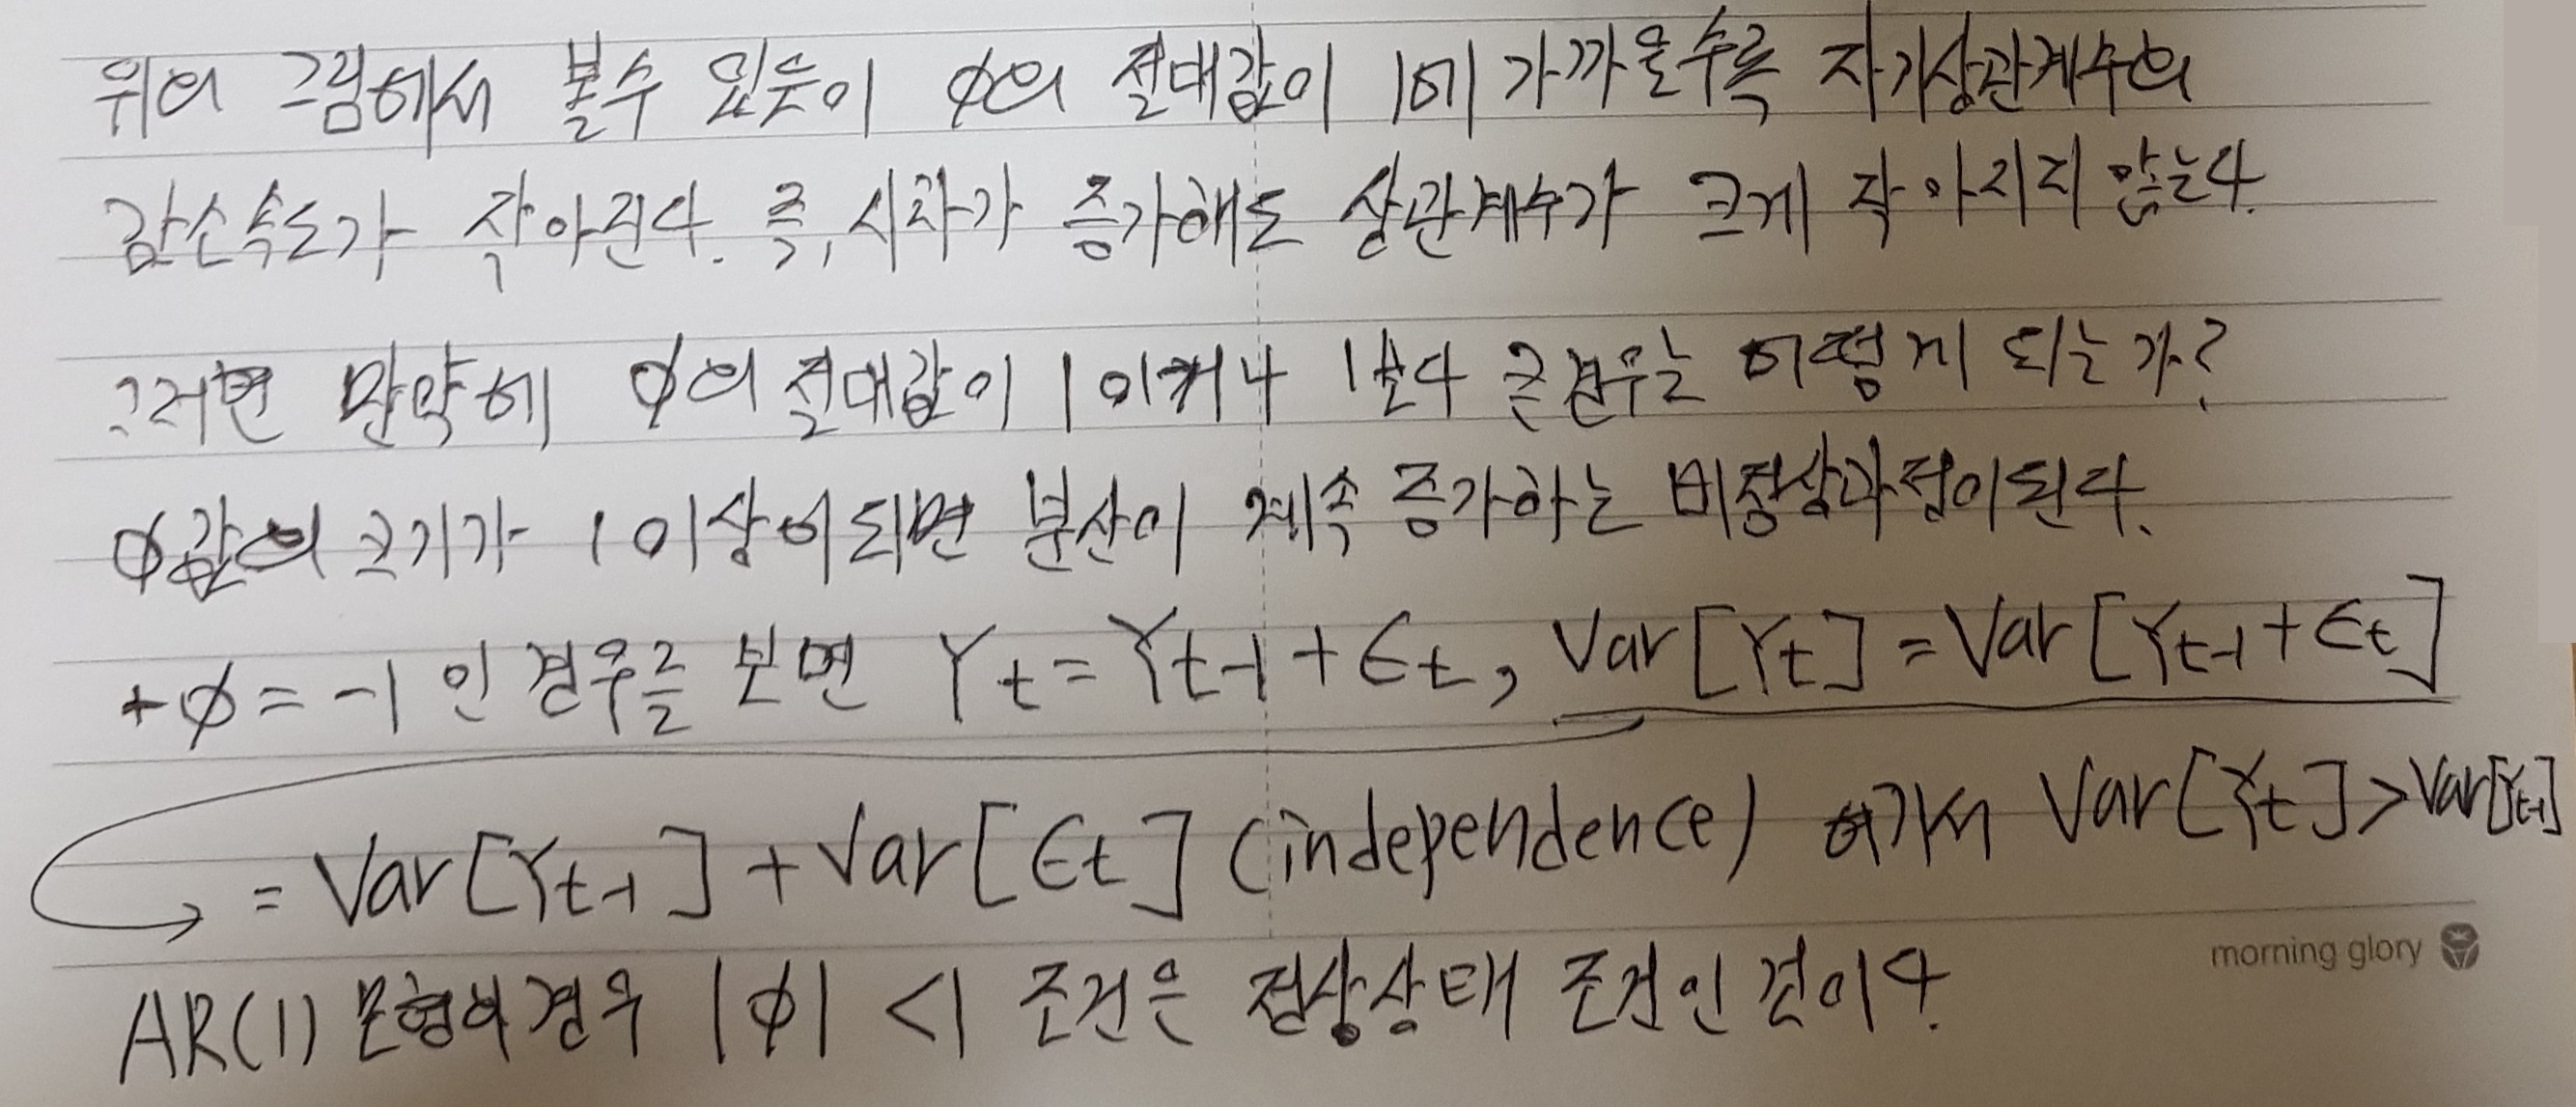 위의 그림에서 볼수 있듯이 ϕ의 절대값이 1에 가까울수록 자기상관계수의
감소속도가 작아진다. 즉, 시차가 증가해도 상관계수가 크게 작아지지 않는다.
그러면 만약에 ϕ의 절대값이 1이거나 1보다 큰경우는 어떻게 되는가?
ϕ값의 크기가 1이상이되면 분산이 계속 증가하는 비정상과정이된다.
+ϕ=-1인 경우를 보면 Yt=Yt-1+Et, Var[Yt]=Var[Yt-1+Et]
=Var[Yt-1]+Var[Et] (independence) 여기서 Var[Yt]>Var[Yt-1]
morning glory
AR(1)모형의경우 |ϕ|<1 조건은 정상상태 조건인 것이다.